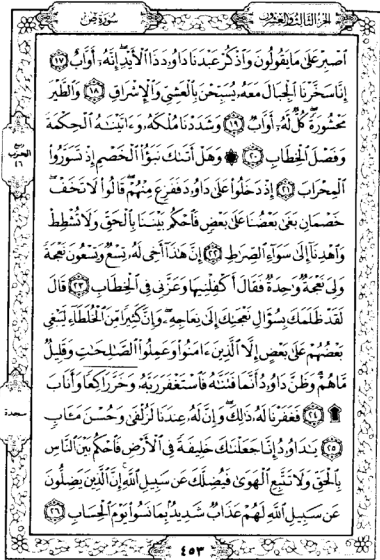 الجزء الثالث والعشرون
سورة ص
ٱصۡبِرۡ عَلَىٰ مَا يَقُولُونَ وَٱذۡكُرۡ عَبۡدَنَا دَاوُۥدَ ذَا ٱلۡأَيۡدِۖ إِنَّهُۥٓ أَوَّابٌ ١٧
إِنَّا سَخَّرۡنَا ٱلۡجِبَالَ مَعَهُۥ يُسَبِّحۡنَ بِٱلۡعَشِيِّ وَٱلۡإِشۡرَاقِ ١٨ وَٱلطَّيۡرَ
مَحۡشُورَةٗۖ كُلّٞ لَّهُۥٓ أَوَّابٞ ١٩ وَشَدَدۡنَا مُلۡكَهُۥ وَءَاتَيۡنَٰهُ ٱلۡحِكۡمَةَ
وَفَصۡلَ ٱلۡخِطَابِ ٢٠ ۞ وَهَلۡ أَتَىٰكَ نَبَؤُاْ ٱلۡخَصۡمِ إِذۡ تَسَوَّرُواْ
ٱلۡمِحۡرَابَ ٢١ إِذۡ دَخَلُواْ عَلَىٰ دَاوُۥدَ فَفَزِعَ مِنۡهُمۡۖ قَالُواْ لَا تَخَفۡۖ
خَصۡمَانِ بَغَىٰ بَعۡضُنَا عَلَىٰ بَعۡضٖ فَٱحۡكُم بَيۡنَنَا بِٱلۡحَقِّ وَلَا تُشۡطِطۡ
وَٱهۡدِنَآ إِلَىٰ سَوَآءِ ٱلصِّرَٰطِ ٢٢ إِنَّ هَٰذَآ أَخِي لَهُۥ تِسۡعٞ وَتِسۡعُونَ نَعۡجَةٗ
وَلِيَ نَعۡجَةٞ وَٰحِدَةٞ فَقَالَ أَكۡفِلۡنِيهَا وَعَزَّنِي فِي ٱلۡخِطَابِ ٢٣ قَالَ
لَقَدۡ ظَلَمَكَ بِسُؤَالِ نَعۡجَتِكَ إِلَىٰ نِعَاجِهِۦۖ وَإِنَّ كَثِيرٗا مِّنَ ٱلۡخُلَطَآءِ لَيَبۡغِي
بَعۡضُهُمۡ عَلَىٰ بَعۡضٍ إِلَّا ٱلَّذِينَ ءَامَنُواْ وَعَمِلُواْ ٱلصَّٰلِحَٰتِ وَقَلِيلٞ
مَّا هُمۡۗ وَظَنَّ دَاوُۥدُ أَنَّمَا فَتَنَّٰهُ فَٱسۡتَغۡفَرَ رَبَّهُۥ وَخَرَّ رَاكِعٗا وَأَنَابَ
۩ ٢٤ فَغَفَرۡنَا لَهُۥ ذَٰلِكَۖ وَإِنَّ لَهُۥ عِندَنَا لَزُلۡفَىٰ وَحُسۡنَ مَـَٔابٖ
٢٥ يَٰدَاوُۥدُ إِنَّا جَعَلۡنَٰكَ خَلِيفَةٗ فِي ٱلۡأَرۡضِ فَٱحۡكُم بَيۡنَ ٱلنَّاسِ
بِٱلۡحَقِّ وَلَا تَتَّبِعِ ٱلۡهَوَىٰ فَيُضِلَّكَ عَن سَبِيلِ ٱللَّهِۚ إِنَّ ٱلَّذِينَ يَضِلُّونَ
عَن سَبِيلِ ٱللَّهِ لَهُمۡ عَذَابٞ شَدِيدُۢ بِمَا نَسُواْ يَوۡمَ ٱلۡحِسَابِ ٢٦
الحزب
٤٦
سجدة
٤٥٣